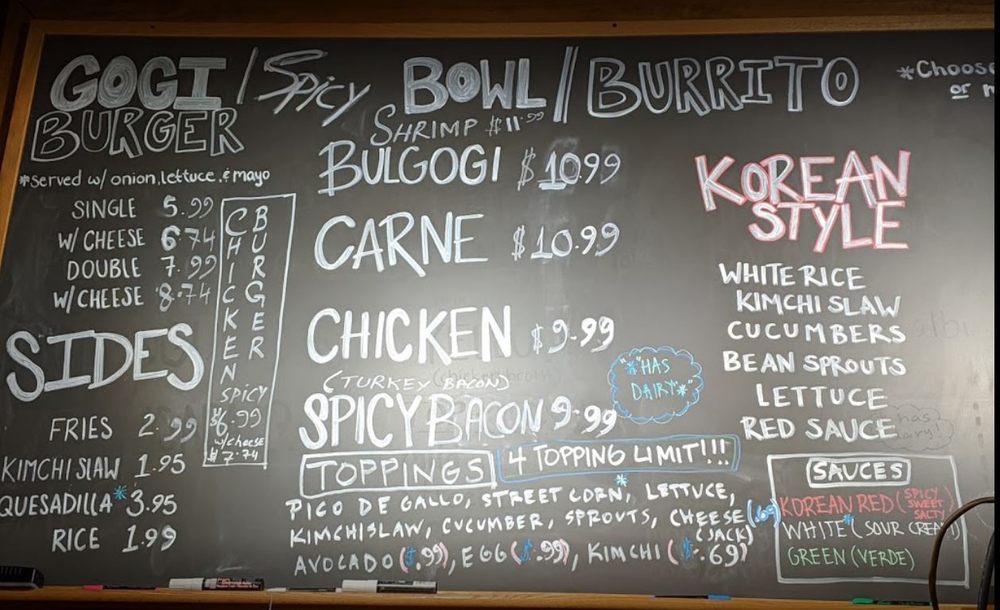 GOGI / SPICY BURGER
*served w/ onion, lettuce, & mayo
SINGLE 5.99
W/ CHEESE 6.74
DOUBLE 7.99
W/ CHEESE 8.74
CHICKEN BURGER
SPICY
$6.99
w/ cheese
$7.74
SIDES
FRIES 2.99
KIMCHI SLAW 1.95
QUESADILLA* 3.95
RICE 1.99
BOWL / BURRITO
SHRIMP $11.99
BULGOGI $10.99
CARNE $10.99
CHICKEN $9.99
(TURKEY BACON)
SPICY BACON 9.99
"*HAS
DAIRY*"
TOPPINGS 4 TOPPING LIMIT!!!
PICO DE GALLO, STREET CORN*, LETTUCE,
KIMCHI SLAW, CUCUMBER, SPROUTS, CHEESE (.69)
(JACK)
AVOCADO ($.99), EGG ($.99), KIMCHI ($.69)
*Choose
or
KOREAN
STYLE
WHITE RICE
KIMCHI SLAW
CUCUMBERS
BEAN SPROUTS
LETTUCE
RED SAUCE
SAUCES
KOREAN RED (SPICY
SWEET
SALTY)
WHITE* (SOUR CREAM)
GREEN (VERDE)